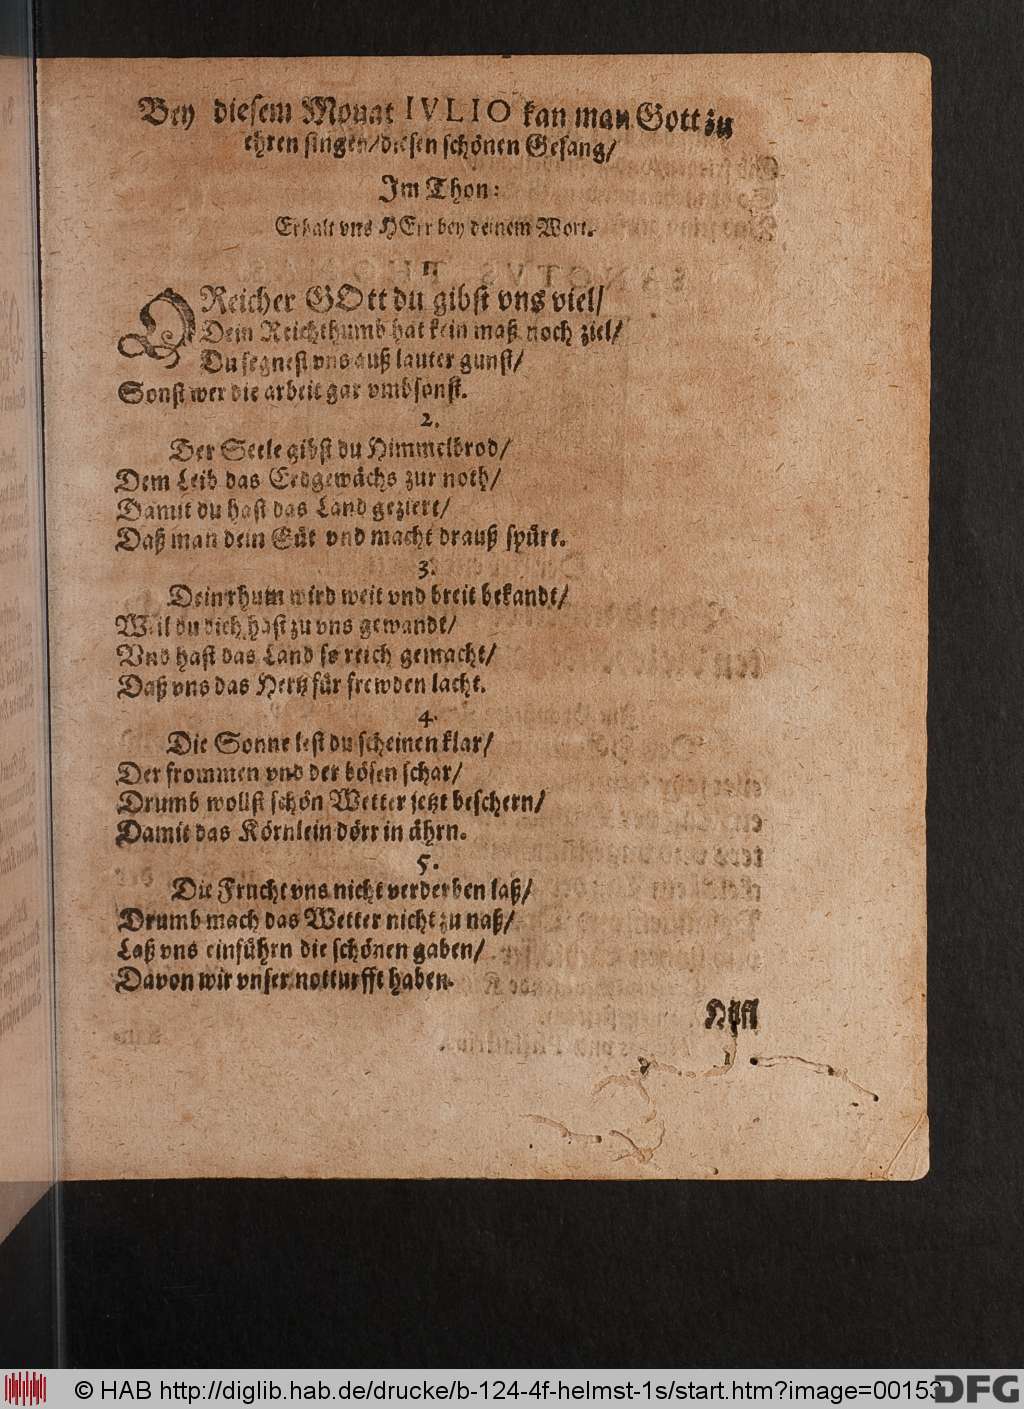 Bey diesem Monat IVLIO kan man Gott zu
ehren singen/diesen schönen Gesang/
Im Thon:
Erhalt vns HErr bey deinem Wort.
1.
O Reicher GOtt du gibst vns viel/
Dein Reichthumb hat kein maß noch ziel/
Du segnest vns auß lauter gunst/
Sonst wer die arbeit gar vmbsonst.
2.
Der Seele gibst du Himmelbrod/
Dem Leib das Erdgewächs zur noth/
Damit du hast das Land geziert/
Daß man dein Güt vnd macht drauß spürt.
3.
Dein rhum wird weit vnd breit bekandt/
Weil du dich hast zu vns gewandt/
Vnd hast das Land so reich gemacht/
Daß vns das Hertz für frewden lacht.
4.
Die Sonne lest du scheinen klar/
Der frommen vnd der bösen schar/
Drumb wollst schön Wetter jetzt beschern/
Damit das Körnlein dörr in ährn.
5.
Die Frucht vns nicht verderben laß/
Drumb mach das Wetter nicht zu naß/
Laß vns einführn die schönen gaben/
Davon wir vnser notturfft haben.
Hilff
© HAB http://diglib.hab.de/drucke/b-124-4f-helmst-1s/start.htm?image=00153
DFG